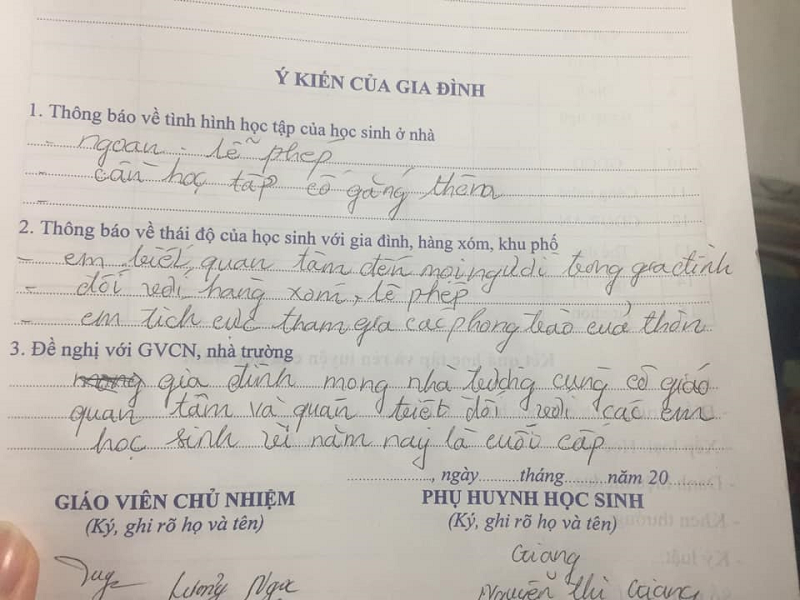 Ý KIẾN CỦA GIA ĐÌNH
1. Thông báo về tình hình học tập của học sinh ở nhà
- ngoan. lễ phép
- cần học tập cố gắng thêm
-
2. Thông báo về thái độ của học sinh với gia đình, hàng xóm, khu phố
- em biết quan tâm đến mọi người trong gia đình
- đối với hàng xóm, lễ phép
- em tích cực tham gia các phong trào của thôn
3. Đề nghị với GVCN, nhà trường
gia đình mong nhà tường cung cô giáo
quan tâm và quán triệt đối với các em
học sinh vì năm nay là cuối cấp
, ngày tháng năm 20
GIÁO VIÊN CHỦ NHIỆM PHỤ HUYNH HỌC SINH
(Ký, ghi rõ họ và tên) (Ký, ghi rõ họ và tên)
Giang
Lương Ngọc Nguyễn Thị Giang